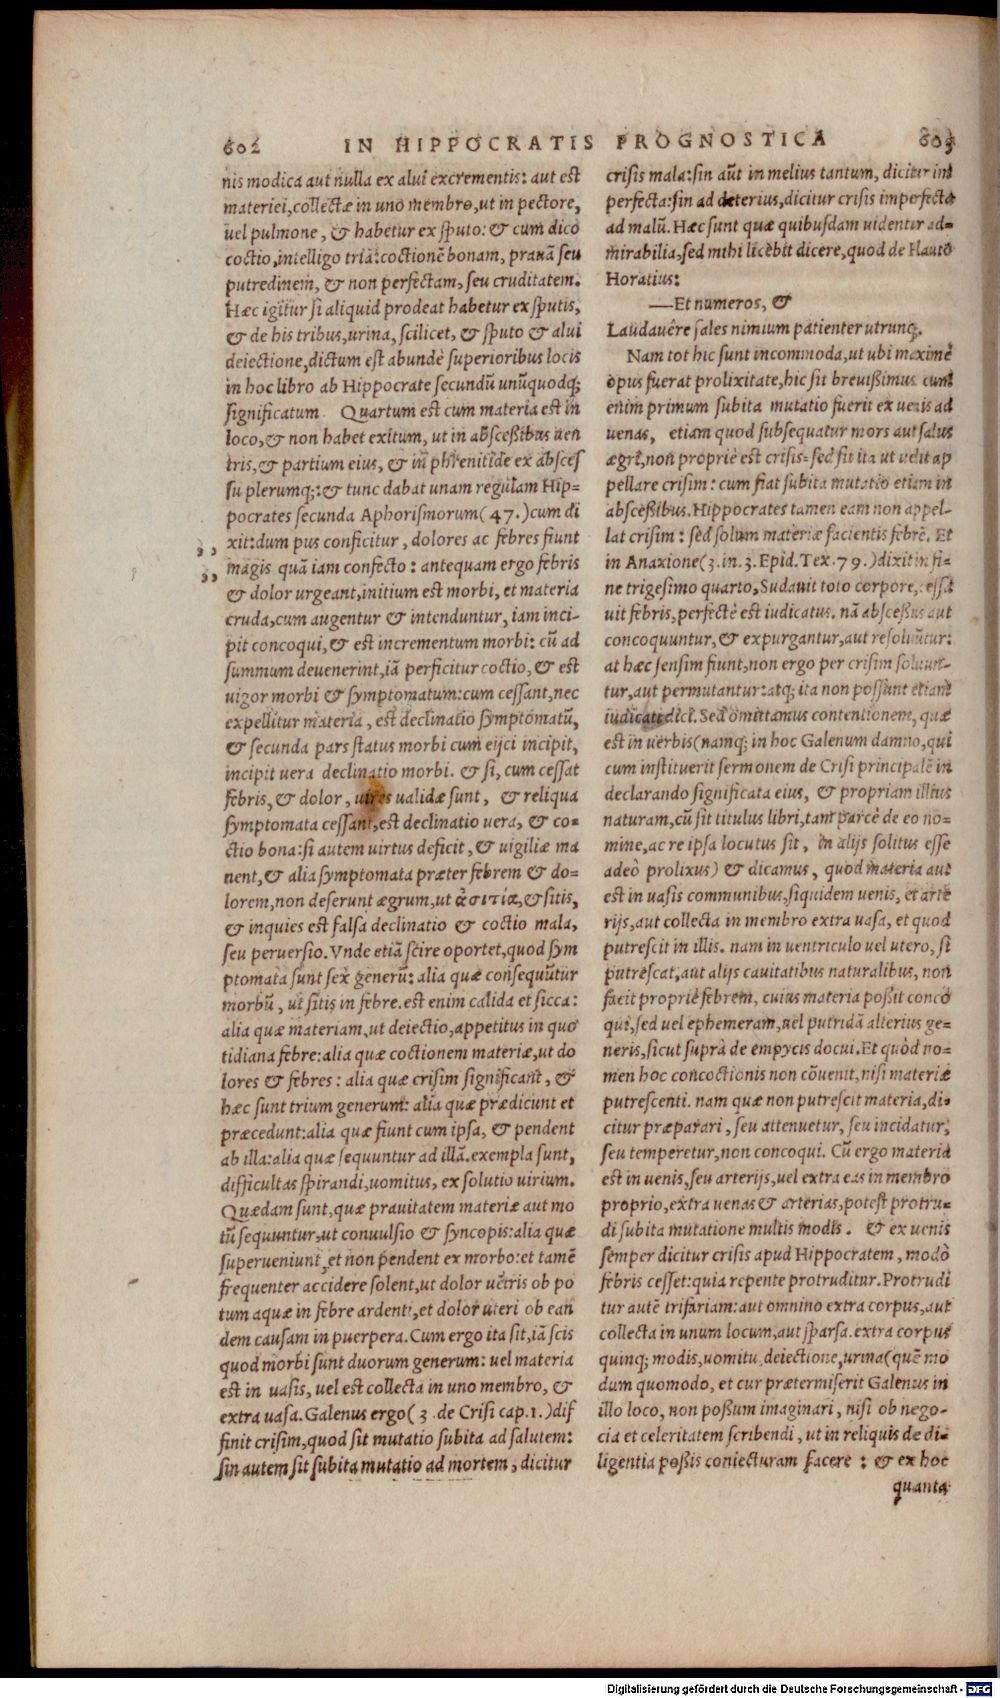 602 IN HIPPOCRATIS PROGNOSTICA 603
nis modica aut nulla ex alui excrementis: aut est
materiei, collectæ in uno membro, ut in pectore,
uel pulmone, & habetur ex sputo: & cum dico
coctio, intelligo tria: coctionē bonam, prauā seu
putredinem, & non perfectam, seu cruditatem.
Hæc igitur si aliquid prodeat habetur ex sputis,
& de his tribus, urina, scilicet, & sputo & alui
deiectione, dictum est abundè superioribus locis
in hoc libro ab Hippocrate secundū unūquodq;
significatum. Quartum est cum materia est in
loco, & non habet exitum, ut in abscessibus uen
tris, & partium eius, & in phrenitide ex absces
su plerumq;: & tunc dabat unam regulam Hip=
pocrates secunda Aphorismorum (47.) cum di
xit: dum pus conficitur, dolores ac febres fiunt
magis quā iam confecto: antequam ergo febris
& dolor urgeant, initium est morbi, et materia
cruda, cum augentur & intenduntur, iam inci-
pit concoqui, & est incrementum morbi: cū ad
summum deuenerint, iā perficitur coctio, & est
uigor morbi & symptomatum: cum cessant, nec
expellitur materia, est declinatio symptomatū,
& secunda pars status morbi cum eijci incipit,
incipit uera declinatio morbi. & si, cum cessat
febris, & dolor, uires ualidæ sunt, & reliqua
symptomata cessant, est declinatio uera, & co=
ctio bona: si autem uirtus deficit, & uigiliæ ma
nent, & alia symptomata præter febrem & do=
lorem, non deserunt ægrum, ut ἀσιτία, & sitis,
& inquies est falsa declinatio & coctio mala,
seu peruersio. Vnde etiā scire oportet, quod sym
ptomata sunt sex generū: alia quæ consequūtur
morbū, ut sitis in febre. est enim calida et sicca:
alia quæ materiam, ut deiectio, appetitus in quo
tidiana febre: alia quæ coctionem materiæ, ut do
lores & febres: alia quæ crisim significant, &
hæc sunt trium generum: alia quæ prædicunt et
præcedunt: alia quæ fiunt cum ipsa, & pendent
ab illa: alia quæ sequuntur ad illā. exempla sunt,
difficultas spirandi, uomitus, exsolutio uirium.
Quædam sunt, quæ prauitatem materiæ aut mo
tū sequuntur, ut conuulsio & syncopis: alia quæ
superueniunt, et non pendent ex morbo: et tamē
frequenter accidere solent, ut dolor uētris ob po
tum aquæ in febre ardenti, et dolor uteri ob ean
dem causam in puerpera. Cum ergo ita sit, iā scis
quod morbi sunt duorum generum: uel materia
est in uasis, uel est collecta in uno membro, &
extra uasa. Galenus ergo (3. de Crisi cap. 1.) dif
finit crisim, quod sit mutatio subita ad salutem:
sin autem sit subita mutatio ad mortem, dicitur
crisis mala: sin aūt in melius tantum, dicitur im
perfecta: sin ad deterius, dicitur crisis imperfecta
ad malū. Hæc sunt quæ quibusdam uidentur ad=
mirabilia, sed mihi licebit dicere, quod de Plauto
Horatius:
—Et numeros, &
Laudauêre sales nimium patienter utrunq;.
Nam tot hic sunt incommoda, ut ubi maximè
opus fuerat prolixitate, hic sit breuissimus. cum
enim primum subita mutatio fuerit ex uenis ad
uenas, etiam quod subsequatur mors aut salus
ægri, non propriè est crisis= sed fit ita ut uelit ap
pellare crisim: cum fiat subita mutatio etiam in
abscessibus. Hippocrates tamen eam non appel-
lat crisim: sed solum materiæ facientis febrē. Et
in Anaxione (3. in. 3. Epid. Tex. 79.) dixit in fi=
ne trigesimo quarto, Sudauit toto corpore, cessa
uit febris, perfectè est iudicatus. nā abscessus aut
concoquuntur, & expurgantur, aut resoluūtur:
at hæc sensim fiunt, non ergo per crisim soluun-
tur, aut permutantur: atq; ita non possunt etiam
iudicati dici. Sed omittamus contentionem, quæ
est in uerbis (namq; in hoc Galenum damno, qui
cum instituerit sermonem de Crisi principalē in
declarando significata eius, & propriam illius
naturam, cū sit titulus libri, tam parcè de eo no=
mine, ac re ipsa locutus sit, in alijs solitus esse
adeò prolixus) & dicamus, quod materia aut
est in uasis communibus, siquidem uenis, et arte
rijs, aut collecta in membro extra uasa, et quod
putrescit in illis. nam in uentriculo uel utero, si
putrescat, aut alijs cauitatibus naturalibus, non
facit propriè febrem, cuius materia possit conco
qui, sed uel ephemeram, uel putridā alterius ge=
neris, sicut suprà de empycis docui. Et quòd no=
men hoc concoctionis non cōuenit, nisi materiæ
putrescenti. nam quæ non putrescit materia, di=
citur præparari, seu attenuetur, seu incidatur,
seu temperetur, non concoqui. Cū ergo materia
est in uenis, seu arterijs, uel extra eas in membro
proprio, extra uenas & arterias, potest protru=
di subita mutatione multis modis. & ex uenis
semper dicitur crisis apud Hippocratem, modò
febris cesset: quia repente protruditur. Protrudi
tur autē trifariam: aut omnino extra corpus, aut
collecta in unum locum, aut sparsa. extra corpus
quinq; modis, uomitu, deiectione, urina (quē mo
dum quomodo, et cur prætermiserit Galenus in
illo loco, non possum imaginari, nisi ob nego-
cia et celeritatem scribendi, ut in reliquis de di=
ligentia possis coniecturam facere: & ex hoc
quanta
Digitalisierung gefördert durch die Deutsche Forschungsgemeinschaft - DFG